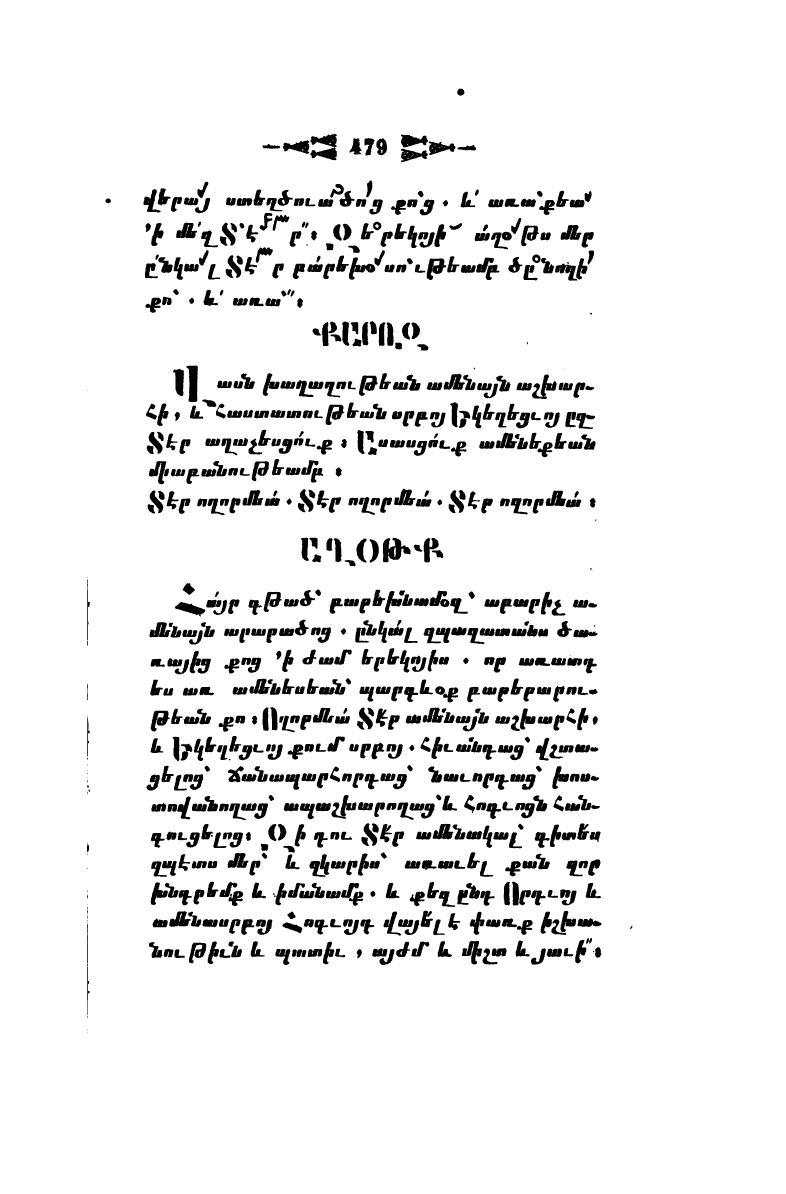 479
վերայ ստեղծուածոց քոց . և առաքեա
՚ի մեզ Տէր ։ Զերեկոյի աղօթս մեր
ընկալ Տէր բարեխօսութեամբ ծընողի
քո՝ . և առա ։
ՔԱՐՈԶ
Վասն խաղաղութեան ամենայն աշխար-
հի , և հաստատութեան սրբոյ Եկեղեցւոյ ըզ-
Տէր աղաչեսցո՛ւք ։ Ասասցո՛ւք ամենեքեան
միաբանութեամբ ։
Տէր ողորմեա՛ . Տէր ողորմեա՛ . Տէր ողորմեա՛ ։
ԱՂՕԹՔ
Հա՛յր գթած՝ բարեխնամօղ՝ արարիչ ա-
մենայն արարածոց . ընկա՛լ զպաղատանս ծա-
ռայից քոց ՚ի ժամ երեկոյիս . որ առատդ
ես առ ամենեսեան՝ պարգևօք բարերարու-
թեան քո ։ Ողորմեա՛ Տէր ամենայն աշխարհի ,
և Եկեղեցւոյ քում սրբոյ . հիւանդաց՝ վշտա-
ցելոց՝ ճանապարհորդաց՝ նաւորդաց՝ խոս-
տովանողաց՝ ապաշխարողաց՝ և հոգւոցն հան-
գուցելոց։ Զի դու Տէր ամենակալ՝ գիտես
զպէտս մեր՝ և զկարիս՝ առաւել քան զոր
խնդրեմք և իմանամք . և քեզ ընդ Որդւոյ և
ամենասրբոյ Հոգւոյդ վայել է փառք իշխա-
նութիւն և պատիւ , այժմ և միշտ և յաւի ։